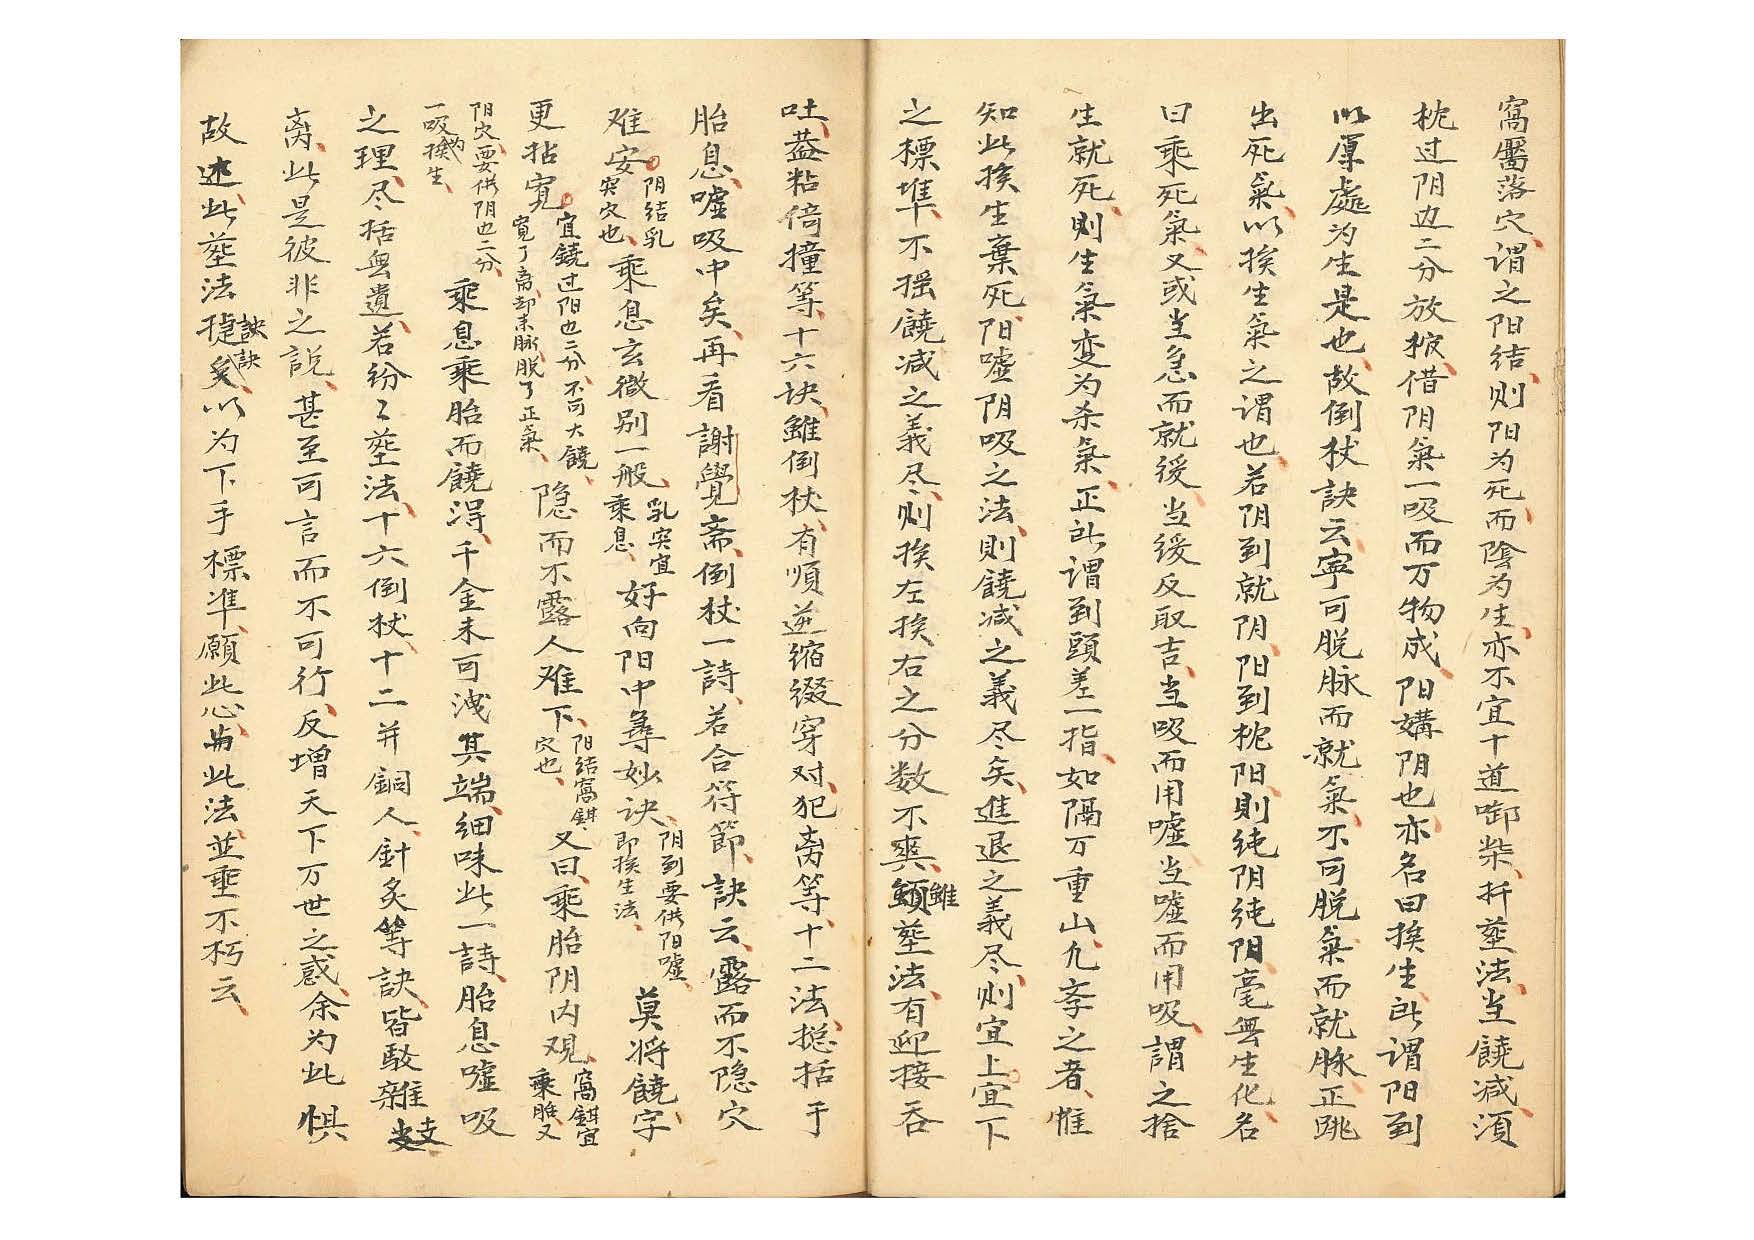 窩靨落穴、谓之阳结、则阳为死而陰为生、亦不宜十道啣柴、扦𦵏法、当饒减、須
枕过阴边二分放棺、借阴氣一吸而万物成、阳媾阴也、亦名曰挨生、所谓阳到
以厚處为生是也、故倒杖訣云、寧可脱脉而就氣、不可脱氣而就脉、正跳
出死氣、以挨生氣之谓也、若阴到就阴、阳到枕阳、则纯阴纯阳、毫無生化、名
曰乘死氣、又或当急而就缓、当缓反取吉、当吸而用嘘、当嘘而用吸、謂之捨
生就死、则生氣变为杀氣、正所謂到頭差一指、如隔万重山、凢孝之者、惟
知此挨生棄死、阳嘘阴吸之法、则饒减之義尽矣、進退之義尽、则宜上宜下
之標準、不摇饒减之義尽、则挨左挨右之分数不爽、雖𦵏法、有迎接吞
吐、葢粘倚撞等、十六诀、雖倒杖、有順逆缩缀穿对、犯离等、十二法、揔括于
胎息、嘘吸中矣、再看謝覺斋、倒杖一詩、若合符節、訣云、露而不隐穴
难安阴结乳突穴也、乘息玄微别一般、乳突宜乘息、好向阳中尋妙诀、阴到要供阳嘘、即挨生法、莫将饒字
更拈寬宜饒过阳边二分、不可大饒、寬了离却来脉、脱了正氣、隐而不露人难下、阳结窩鉗穴也、又曰、乘胎阴内观、窩鉗宜乘胎、又
阴穴、要供阴边二分、一吸为挨生、乘息乘胎而饒得、千金未可洩其端、細味此一詩、胎息嘘吸
之理、尽括無遺、若纷〻𦵏法、十六倒杖、十二并銅人、針炙等訣、皆駁雜支
离、此是彼非之説、甚至可言而不可行、反增天下万世之惑、余为此惧
故述、此𦵏法捷訣、以为下手標準、願此心与此法、並垂不朽云、